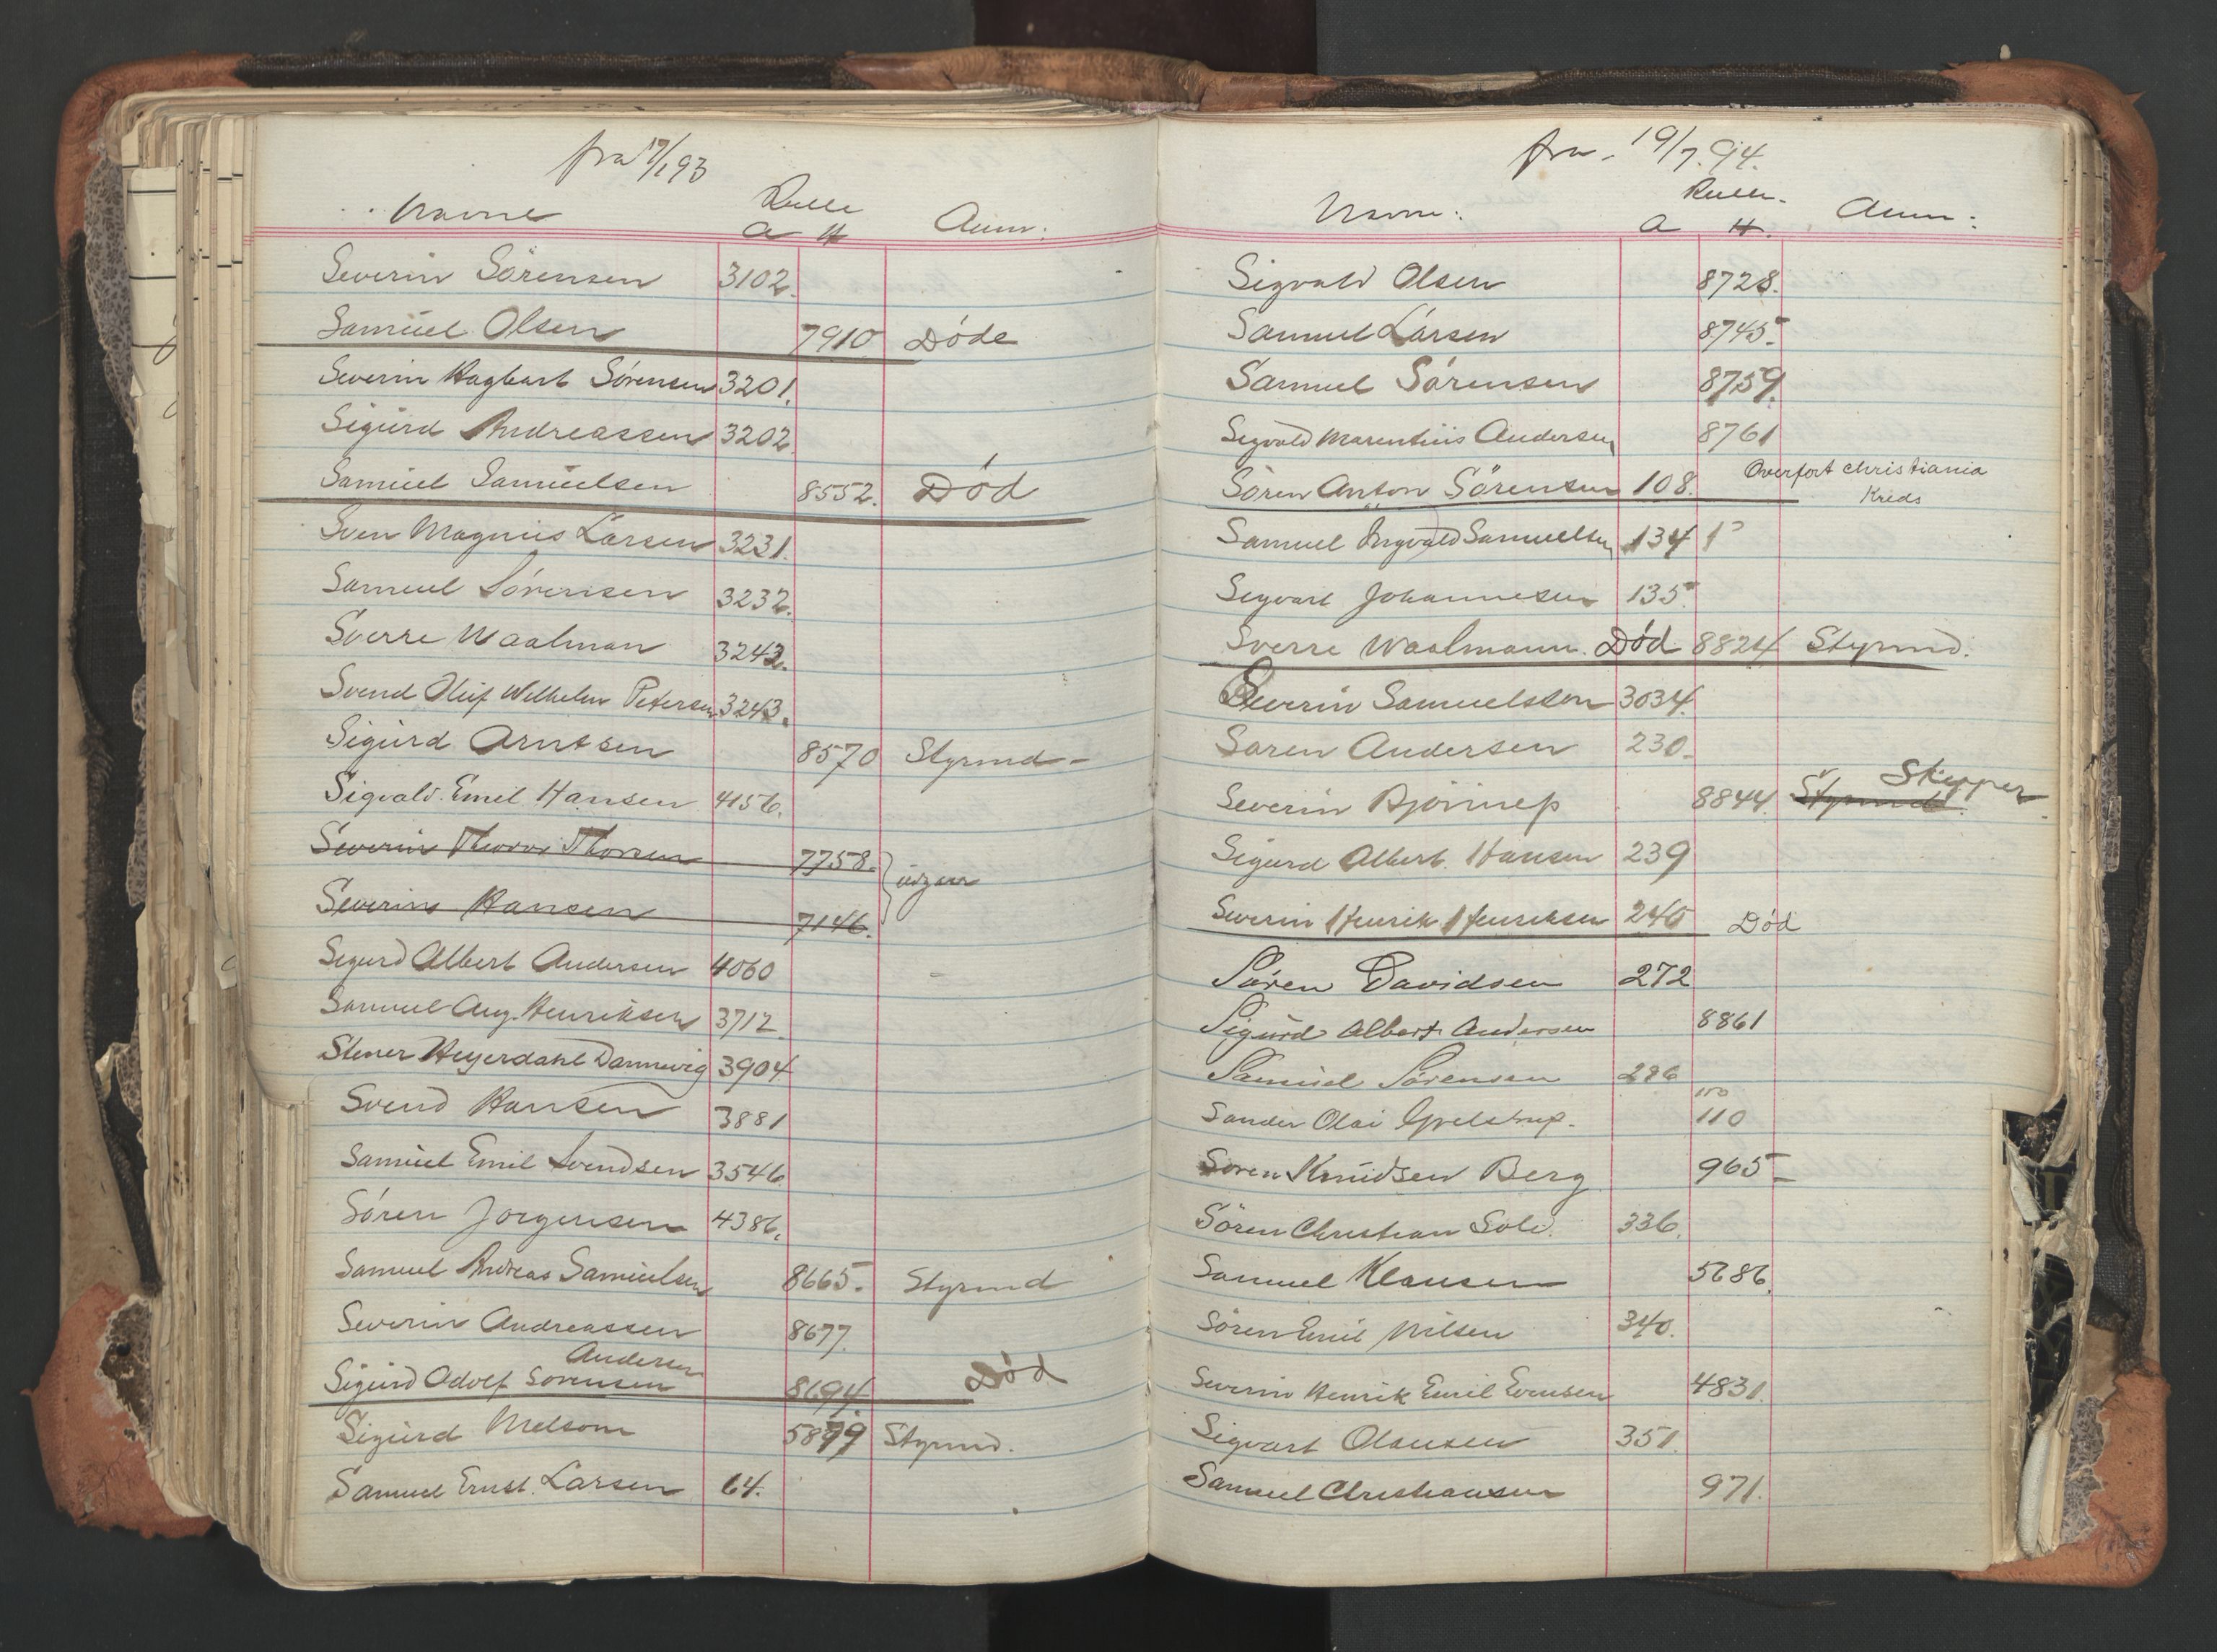 fra 17/1 93
Navne Rulle Anm:
a H
Severin Sörensen 3102.
Samuel Olsen 7910 Döde
Severin Hagbart Sörensen 3201.
Sigurd Andreassen 3202
Samuel Samuelsen 8552. Död
Sven Magnus Larsen 3231.
Samuel Sörensen 3232.
Sverre Waalman 3242.
Svend Oluf Wilhelm Petersen 3243.
Sigurd Arntsen 8570 Styrmd-
Sigvald Emil Hansen 4156.
Severin Thorsen 7758.
udgaar
Severin Hansen 7146.
Sigurd Albert Andersen 4060
Samuel Aug. Henriksen 3712
Stener Heyerdahl Dannevig 3904
Svend Hansen 3881
Samuel Emil Svendsen 3546
Sören Jorgensen 4386.
Samuel Andreas Samuelsen 8665. Styrmd
Severin Andreassen 8677.
Andersen
Sigurd Adolf Sorensen 8694. Död
Sigurd Melsom 5879 Styrmd.
Samuel Ernst. Larsen 64.
fra. 19/7. 94.
Navn: Rulle. Anm:
a H.
Sigvald Olsen 8728.
Samuel Larsen 8745.
Samuel Sörensen 8759.
Sigvald Marentius Andersen 8761
Sören Anton Sörensen 108. Overfört Christiania
Kreds
Samuel Ingvald Samuelsen 134
Sigvart Johannesen 135.
Sverre Waalmann. Död 8824 Styrmd.
Severin Samuelsson 3034.
Soren Andersen 230.
Skipper
Severin 8844. Styrmd.
Sigurd Albert. Hansen 239
Severin Henrik Henriksen 240 Död
Sören Davidsen 272
Sigurd Albert Andersen 8861
Samuel Sörensen 286
Sander Olai 110
Soren Knudsen Berg 965
Sören Christian Solv. 336.
Samuel Klausen 5686.
Sören Emil Nilsen 340.
Severin Henrik Emil Evensen 4831.
Sigvart Olausen 351.
Samuel Christiansen 971.